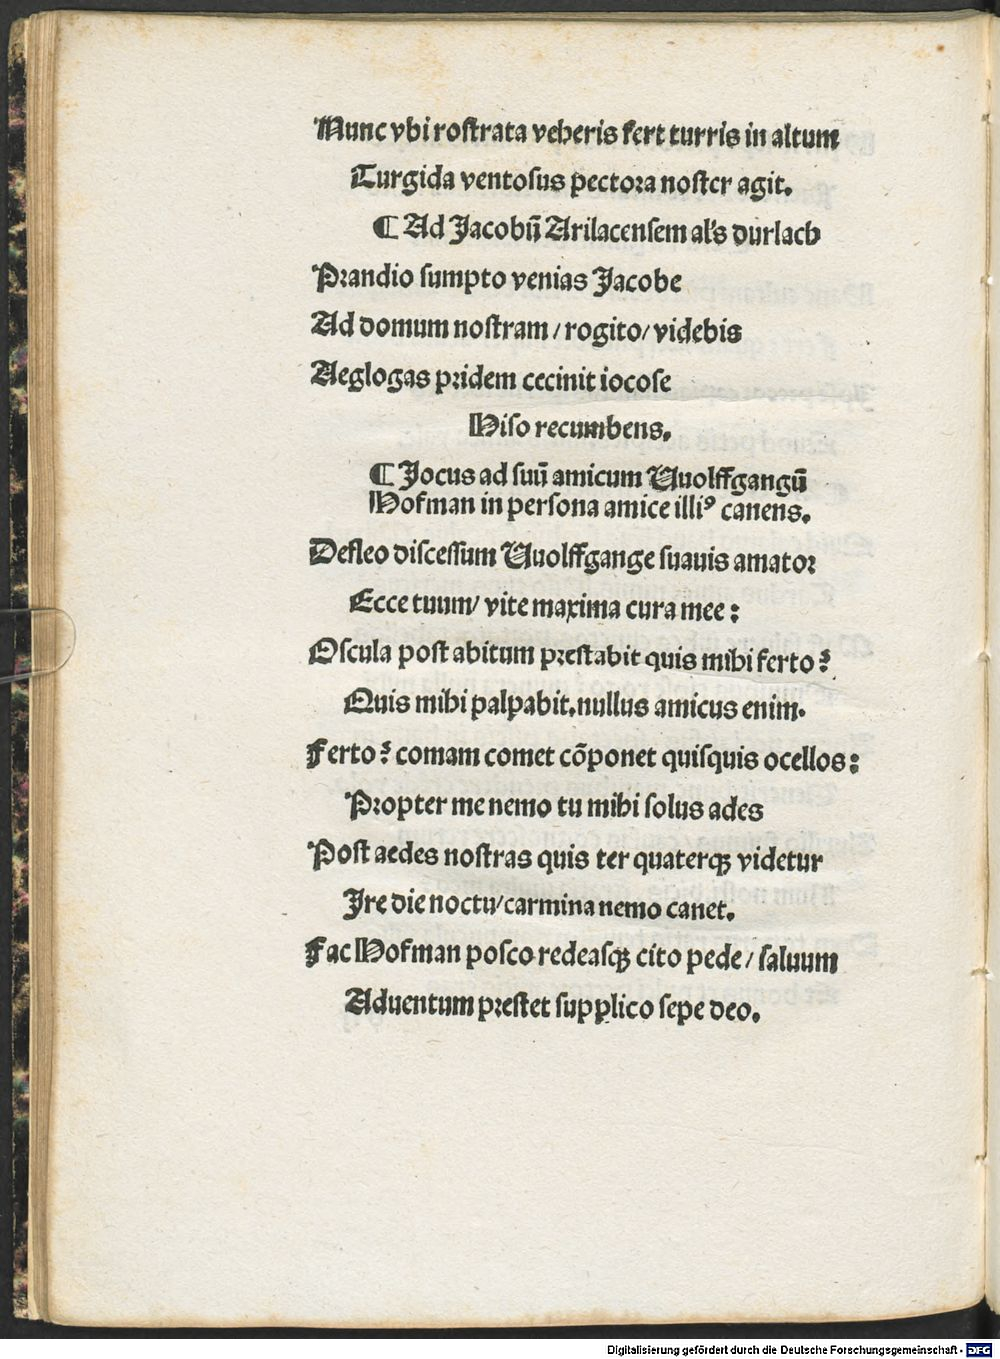 Nunc vbi roſtrata veheris fert turris in altum
Turgida ventoſus pectora noſter agit.
¶ Ad Jacobū Arilacenſem al's durlach
Prandio ſumpto venias Jacobe
Ad domum noſtram / rogito / videbis
Aeglogas pridem cecinit iocoſe
Niſo recumbens.
¶ Jocus ad ſuū amicum Vuolffgangū
Hofman in perſona amice illiꝰ canens.
Defleo diſceſſum Vuolffgange ſuauis amator
Ecce tuum / vite maxima cura mee :
Oſcula poſt abitum preſtabit quis mihi ferto ?
Quis mihi palpabit. nullus amicus enim.
Ferto ? comam comet cōponet quiſquis ocellos :
Propter me nemo tu mihi ſolus ades
Poſt aedes noſtras quis ter quaterqꝫ videtur
Ire die noctu / carmina nemo canet.
Fac Hofman poſco redeaſqꝫ cito pede / ſaluum
Aduentum preſtet ſupplico ſepe deo.
Digitalisierung gefördert durch die Deutsche Forschungsgemeinschaft - DFG